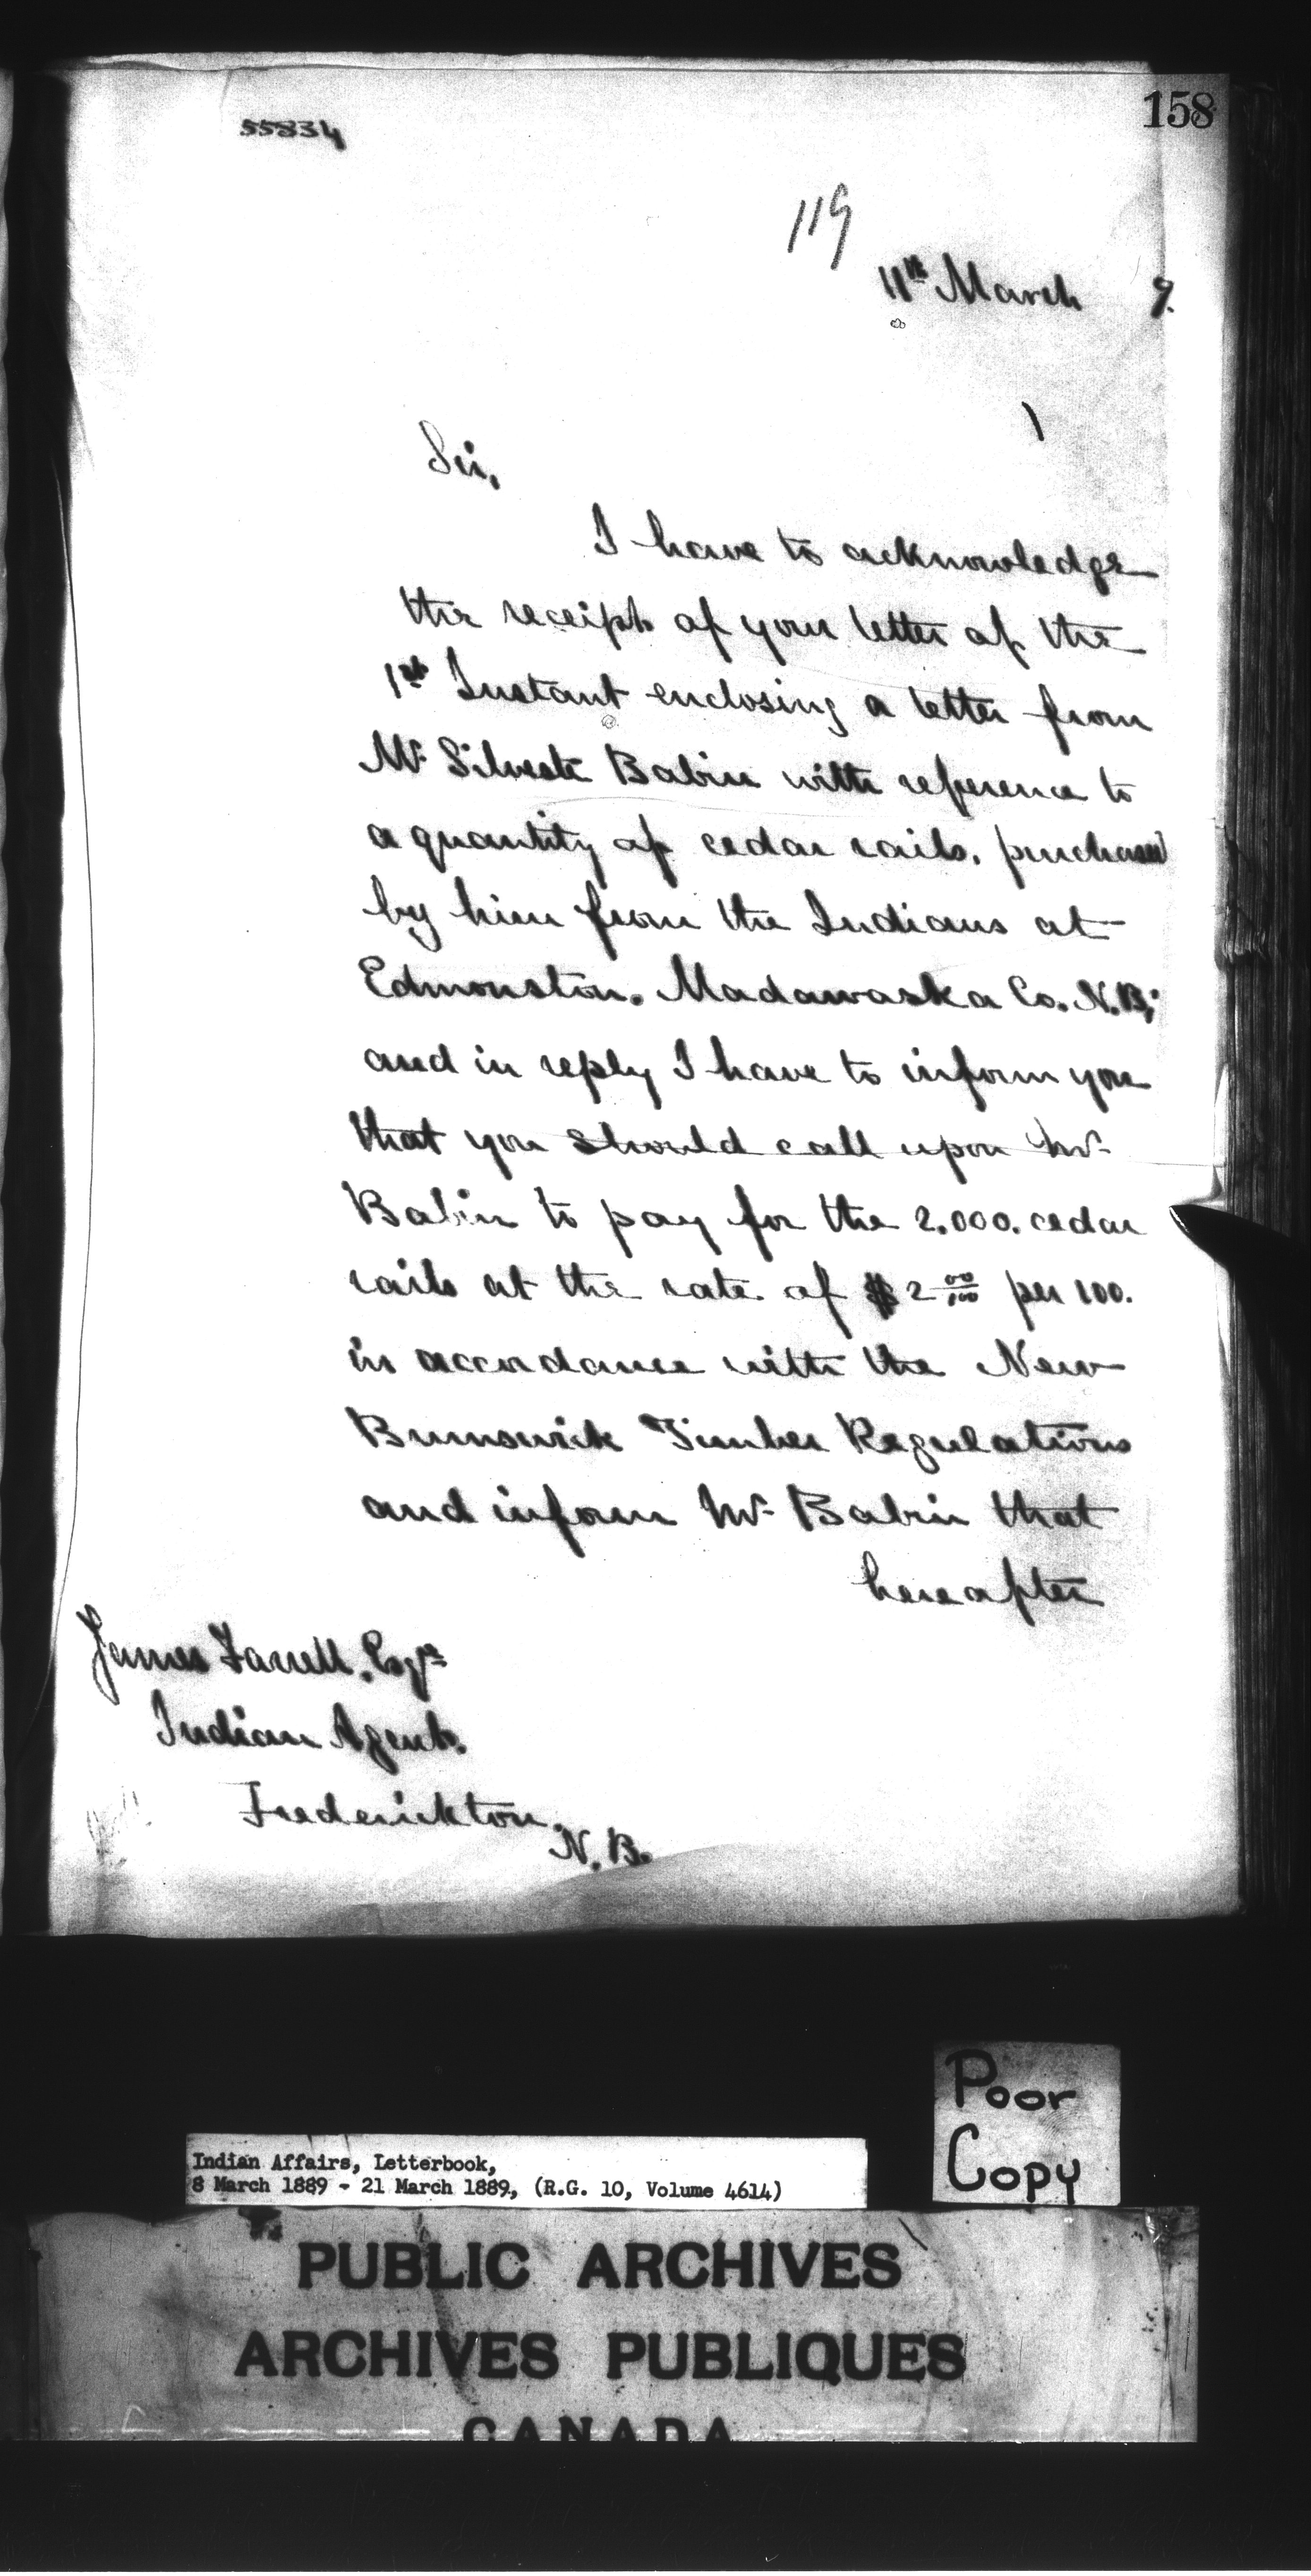 158
55834
119
11th March 9.
Sir,
I have to acknowledge
the receipt of your letter of the
1st Instant enclosing a letter from
Mr Silveste Babin with reference to
a quantity of cedar rails, purchased
by him from the Indians at
Edmonston. Madawaska Co. N.B;
and in reply I have to inform you
that you should call upon Mr
Babin to pay for the 2.000. cedar
rails at the rate of $2 00/100 per 100.
in accordance with the New
Brunswick Timber Regulations
and inform Mr Babin that
hereafter
James Farrell. Esqre
Indian Agent.
Frederickton.
N. B.
Poor
Copy
Indian Affairs, Letterbook,
8 March 1889 - 21 March 1889, (R.G. 10, Volume 4614)
PUBLIC ARCHIVES
ARCHIVES PUBLIQUES
CANADA